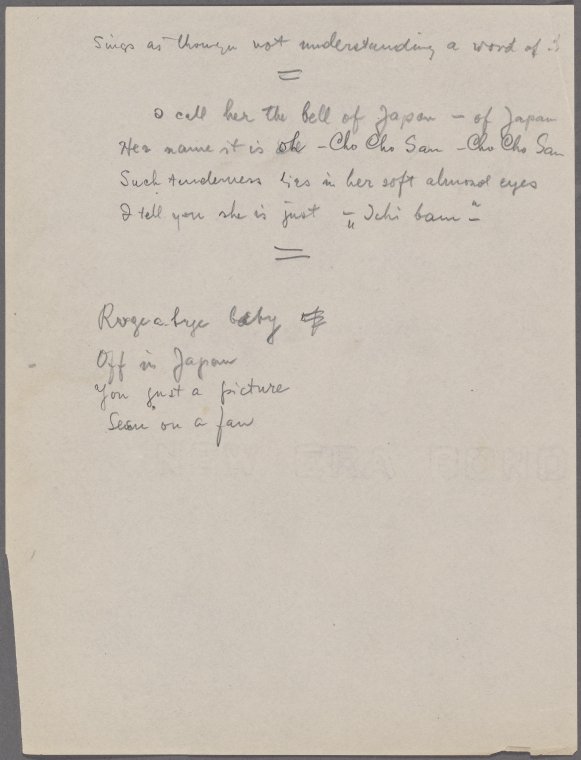 Sings as though not understanding a word of it
I call her the bell of Japan - of Japan
Her name it is oh - Cho Cho San - Cho Cho San
Such tenderness lies in her soft almond eyes
I tell you she is just - "Ichi bam" -
baby
Off in Japan
You just a picture
Seen on a fan
NEW ERA BOND